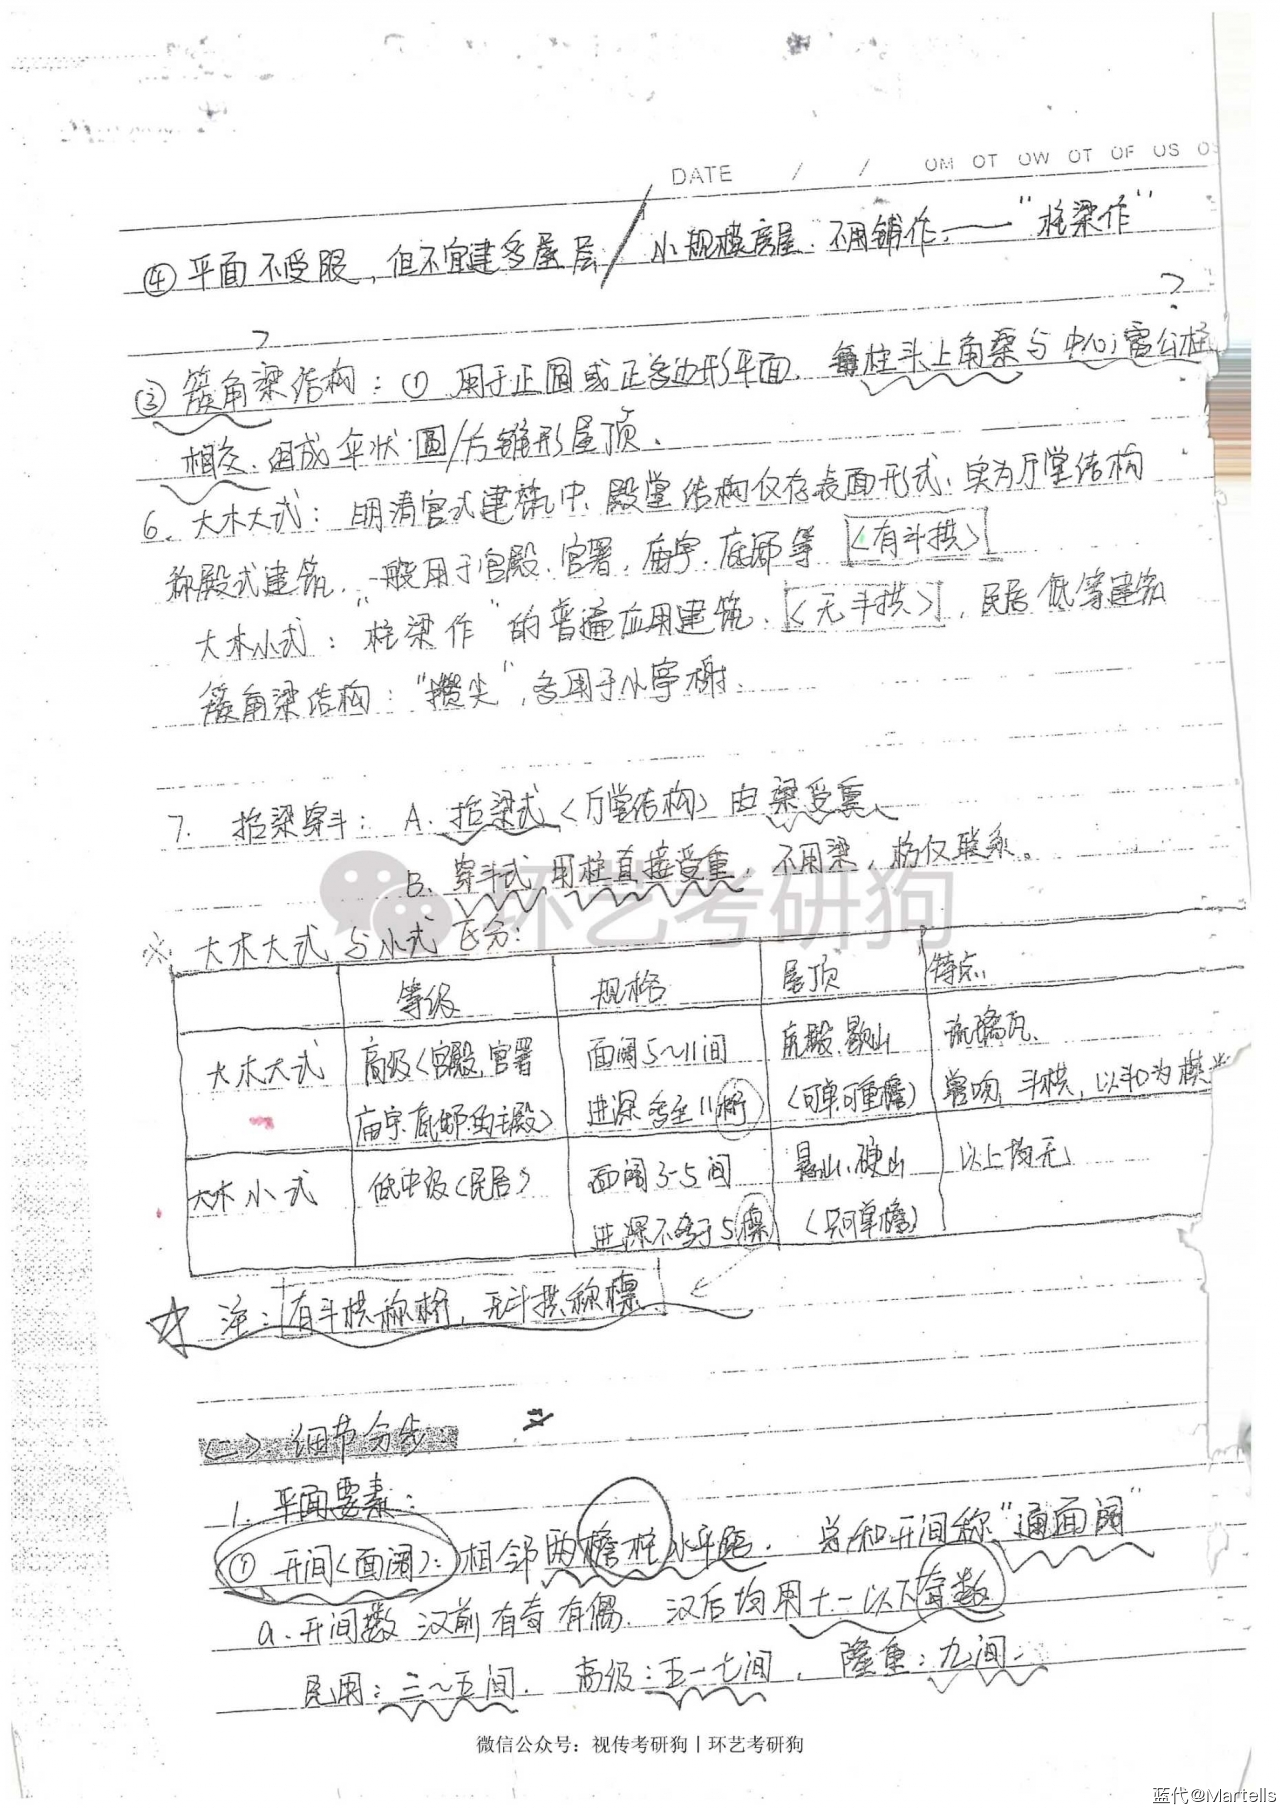 DATE / / OM OT OW OT OF OS
④ 平面不受限，但不宜建多屋层 / 小规模房屋．不用铺作．——"柱梁作"
? ?
③ 簇角梁结构：① 用于正圆或正多边形平面．每柱头上角梁与中心雷公柱
相交．组成伞状 圆/方锥形屋顶．
6、大木大式：明清官式建筑中．殿堂结构仅存表面形式．实为厅堂结构
称殿式建筑．一般用于宫殿．官署．庙宇．底邸等〈有斗拱〉
大木小式："柱梁作"的普遍应用建筑．〈无斗拱〉，民居 低等建筑
簇角梁结构："攒尖"，多用于小亭榭．
7. 抬梁穿斗：A. 抬梁式〈厅堂结构〉由梁受重、
B. 穿斗式．用柱直接受重．不用梁，枋仅联系。
环艺考研狗
※ 大木大式与小式区分：
等级 规格 屋顶 特点
大木大式 高级〈宫殿．官署 面阔5～11间 庑殿．歇山 琉璃瓦．
庙宇．底邸的主殿〉 进深多至11桁〉 〈可单可重檐〉 兽吻，斗拱，以斗口为模
大木小式 低中级〈民居〉 面阔3-5间 悬山．硬山 以上均无
进深不多于5檩 〈只可单檐〉
☆ 注：有斗拱称桁，无斗拱称檩
〈二〉细节分步
1. 平面要素：
① 开间〈面阔〉：相邻两檐柱水平距．总和开间称"通面阔"
a. 开间数 汉前有奇有偶．汉后均用十一以下奇数
民用：三～五间．高级：五-七间，隆重：九间．
微信公众号：视传考研狗丨环艺考研狗
蓝代@Martells